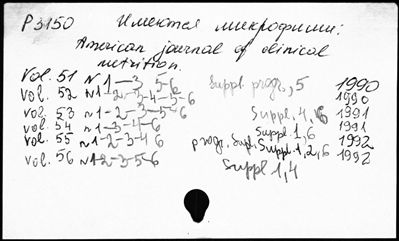 P3150 Имеются микрофиши:
American journal of clinical
nutrition.
Vol. 51 N 1—3, 5-6 Suppl. progr., 5 1990
vol. 52 N1-2-3-4-5-6 1990
vol 53 N1-2-3-5-6 Suppl, 4, 6 1991
vol. 54 N1-3-4-6 Suppl. 1,6 1991
vol. 55 N1-2-3-4 6 progr. Supl, Suppl. 1,2,6 1992
vol. 56 N1-2-3-5-6 1992
Suppl 1,4